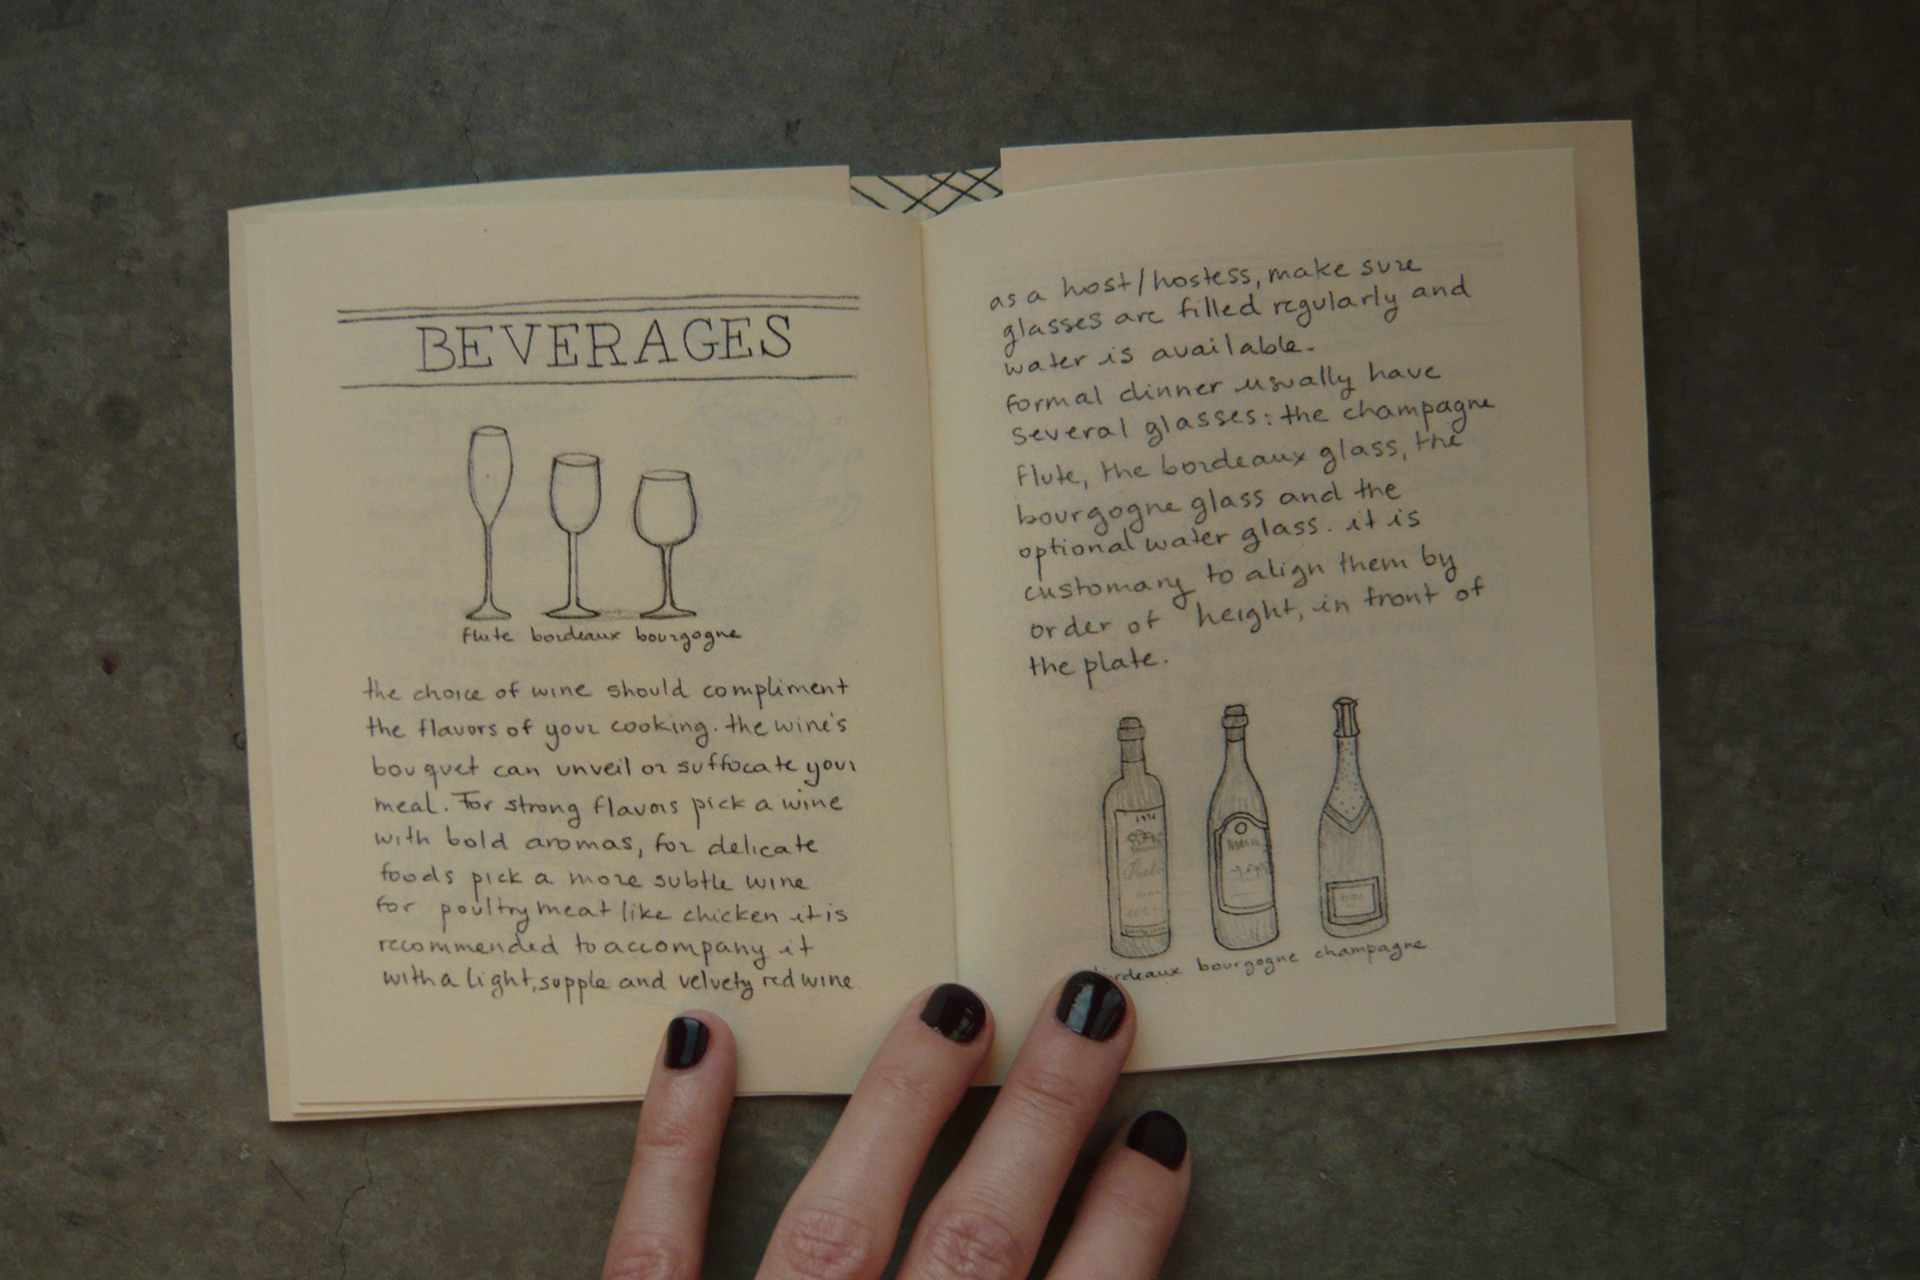 BEVERAGES
flute bordeaux bourgogne
the choice of wine should compliment
the flavors of your cooking. the wine's
bouquet can unveil or suffocate your
meal. For strong flavors pick a wine
with bold aromas, for delicate
foods pick a more subtle wine
for poultry meat like chicken it is
recommended to accompany it
with a light, supple and velvety red wine
as a host/hostess, make sure
glasses are filled regularly and
water is available.
formal dinner usually have
several glasses: the champagne
flute, the bordeaux glass, the
bourgogne glass and the
optional water glass. it is
customary to align them by
order of height, in front of
the plate.
bordeaux bourgogne champagne